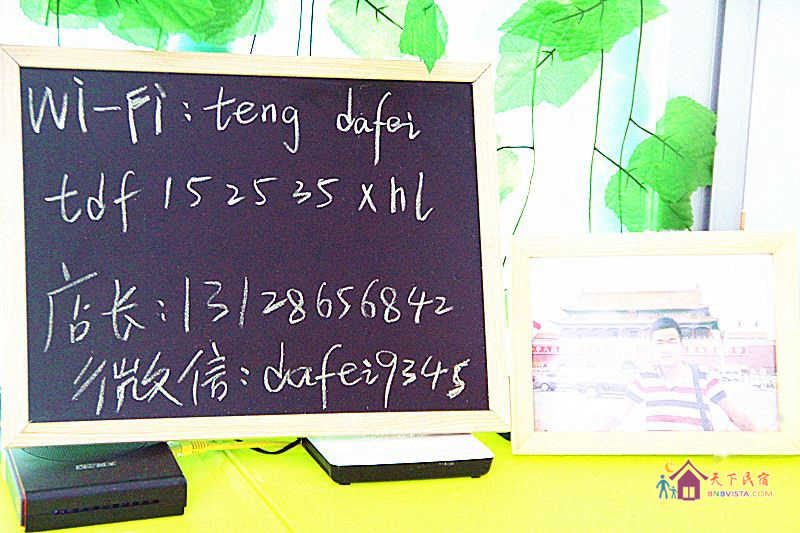 Wi-Fi: teng dafei
tdf 152535 xhl
店长: 13128656842
微信: dafei9345
天下民宿
BNBVISTA.COM